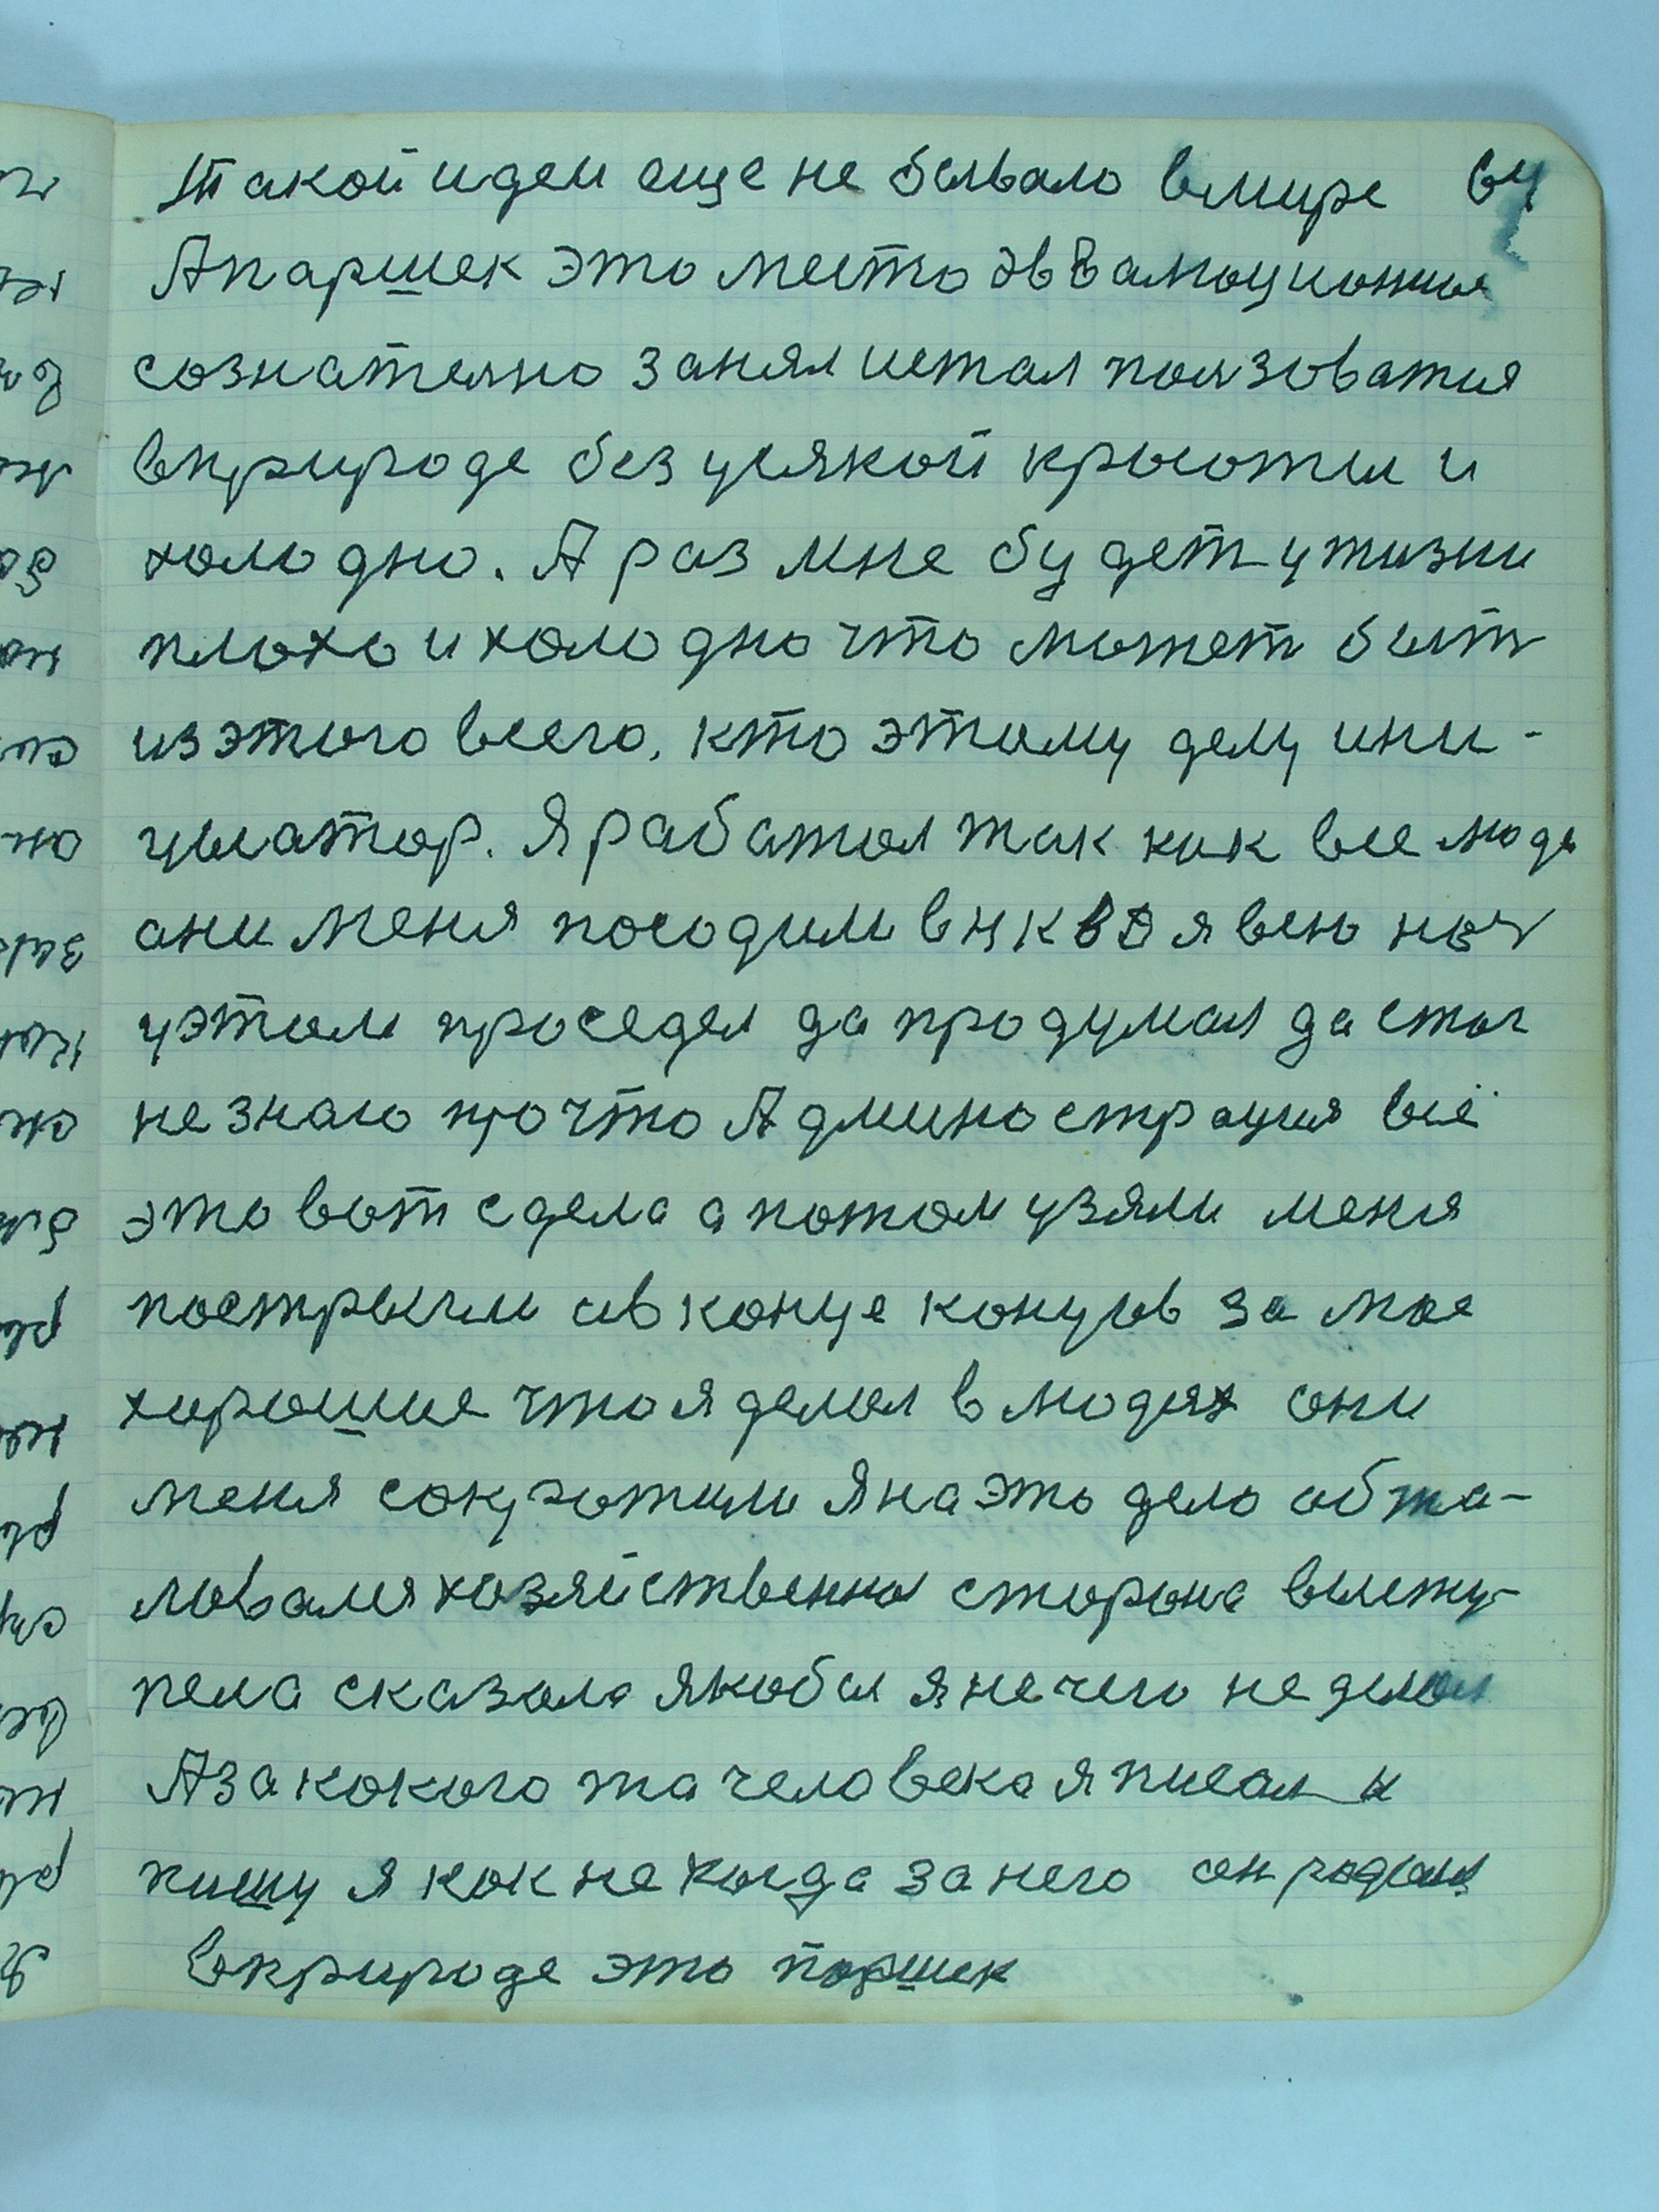 Такой идеи еще не бывало вмире 64
Апаршек это место эввалюционна
сознателно занял истал ползоватся
вприроде без усякой крысоты и
холодно. А раз мне будет ужизни
плохо ихолодно что может быт
изэтого всего, кто этому делу ини-
цыатор. Я работал так как все люди
они меня посодили внквд я всю ноч
уэтом проседел да продумал да стых
незнаю прочто Администрация всё
это вот сдела а потом узяли меня
постригли ивконце концов за мое
хорошие что я делал влюдях они
меня сокротили Янаэто дело обжа-
ловался хозяйственная сторона высту-
пела сказала якобы янечего неделал
Аза какого та человека яписал и
пишу я как некогда занего он родился
вприроде это поршек